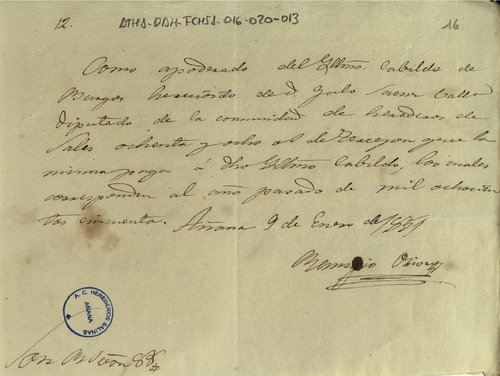 12. ATHA-DAH-FCHSA-016-020-013 16
Como apoderado del Yllmo. Cabildo de
Burgos he recibido de D. Julo
Diputado de la comunidad de herederos de
Sales ochenta y ocho de que la
misma paga á dho Yllmo Cabildo, los cuales
corresponden al año pasado de mil ochocien
tos cincuenta. Añana 9 de Enero de 1851
Remigio
A. C. HEREDEROS SALINAS
AÑANA
Son 88